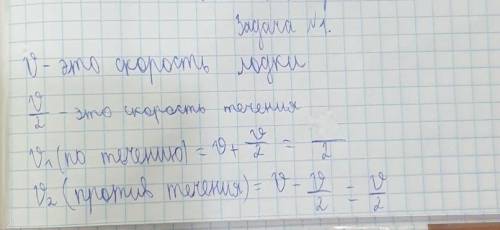 Задача №1.
v - это скорость лодки
v/2 - это скорость течения
v₁ (по течению) = v + v/2 = /2
v₂ (против течения) = v - v/2 = v/2